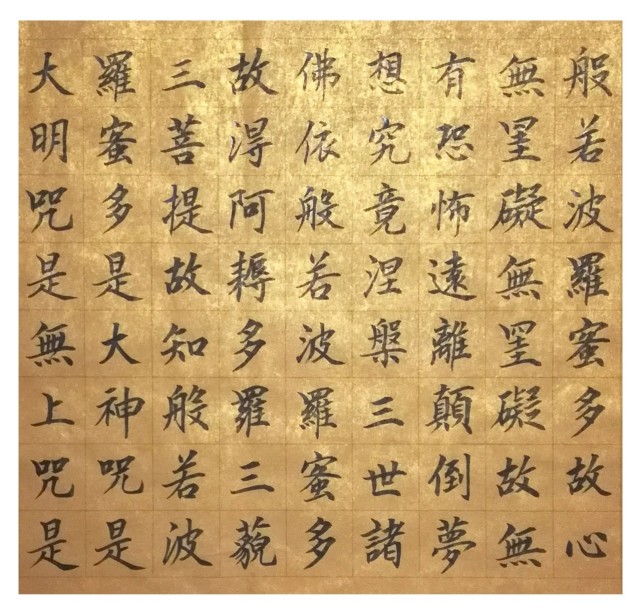 般若波羅蜜多故心
無罣礙無罣礙故無
有恐怖遠離顛倒夢
想究竟涅槃三世諸
佛依般若波羅蜜多
故得阿耨多羅三藐
三菩提故知般若波
羅蜜多是大神咒是
大明咒是無上咒是